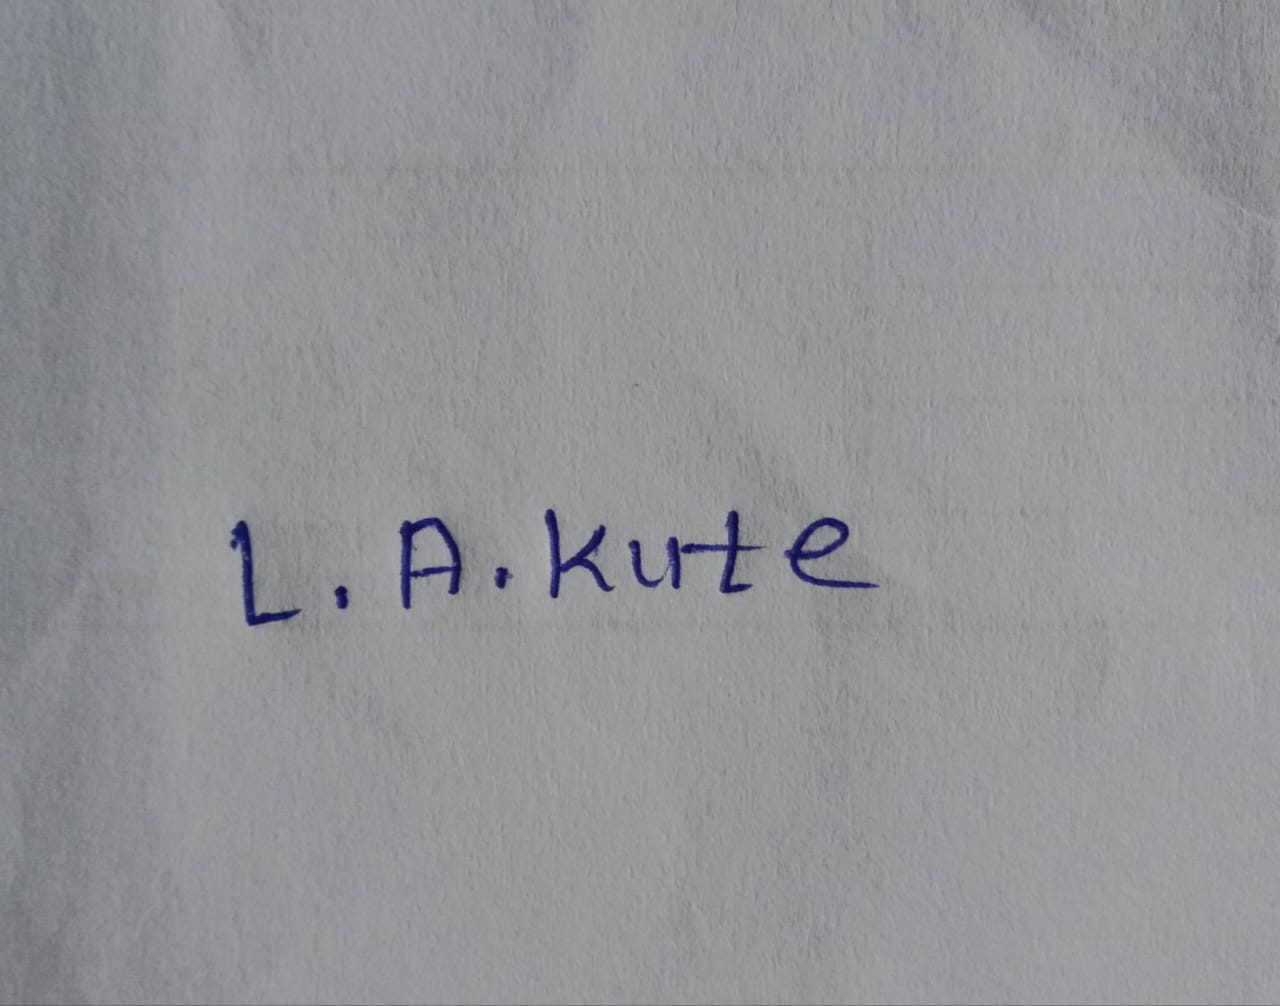 L. A. Kute